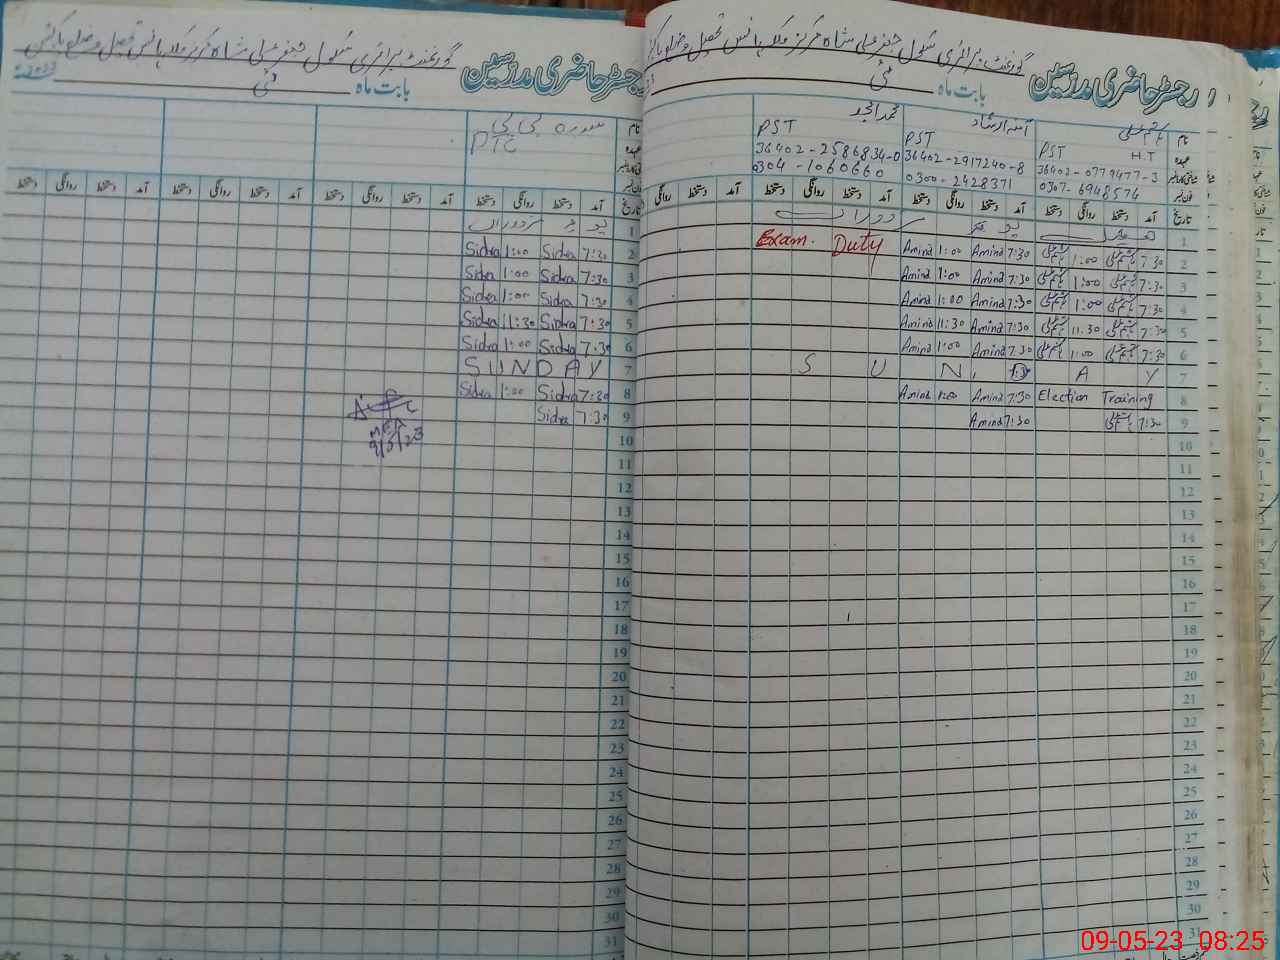 گورنمنٹ پرائمری سکول جعفر علی شاہ مرکز ملکہ ہانس تحصیل و ضلع پاکپتن
رجسٹر حاضری مدرسین
بابت ماہ مئی
نام
عہدہ PST H.T
شناختی کارڈ نمبر 36402-0779477-3
فون نمبر 0307-6948574
آمنہ ارشاد
PST
36402-2917240-8
0300-2428371
محمد امجد
PST
36402-2586834-0
0304-1060660
تاریخ آمد دستخط روانگی دستخط آمد دستخط روانگی دستخط آمد دستخط روانگی دستخط دستخط روانگی
1 یوم مزدوراں
2 7:30 1:00 7:30 Amina 1:00 Amina Exam. Duty
3 7:30 1:00 7:30 Amina 1:00 Amina
4 7:30 1:00 7:30 Amina 1:00 Amina
5 7:30 11.30 7:30 Amina 11:30 Amina
6 7:30 1:00 7:30 Amina 1:00 Amina
7 S U N D A Y
8 Election Training 7:30 Amina 1:00 Amina
9 7:30 7:30 Amina
10
11
12
13
14
15
16
17
18
19
20
21
22
23
24
25
26
27
28
29
30
31
گورنمنٹ پرائمری سکول جعفر علی شاہ مرکز ملکہ ہانس تحصیل و ضلع پاکپتن
رجسٹر حاضری مدرسین
بابت ماہ مئی 2023
نام سدرہ بی بی
PTC
تاریخ آمد دستخط روانگی دستخط آمد دستخط روانگی دستخط آمد دستخط روانگی دستخط آمد دستخط روانگی دستخط
1 یوم مزدوراں
2 7:30 Sidra 1:00 Sidra
3 7:30 Sidra 1:00 Sidra
4 7:30 Sidra 1:00 Sidra
5 7:30 Sidra 11:30 Sidra
6 7:30 Sidra 1:00 Sidra
7 SUNDAY
8 7:30 Sidra 1:00 Sidra
9 7:30 Sidra
MEA
9/5/23
10
11
12
13
14
15
16
17
18
19
20
21
22
23
24
25
26
27
28
29
30
31
09-05-23 08:25